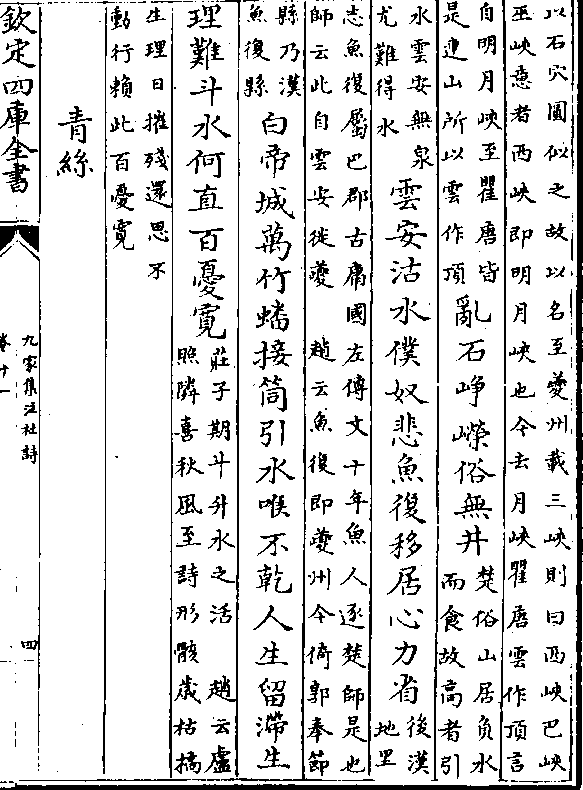 以石穴圓似之故以名至夔州載三峽則曰西峽巴峽
巫峽意者西峽即明月峽也今去月峽瞿唐雲作頂言
自明月峽至瞿唐皆
是連山所以雲作頂
亂石崢嶸俗無井
楚俗山居負水
而食故高者引
水雲安無泉
尤難得水
雲安沽水僕奴悲魚復移居心力省
後漢
地里
志魚復屬巴郡古庸國左傳文十年魚人逐楚師是也
師云此自雲安徙夔　趙云魚復即夔州今倚郭奉節
縣乃漢
魚復縣
白帝城萬竹蟠接筒引水喉不乾人生留滯生
理難斗水何直百憂寛
莊子期斗升水之活　趙云盧
照隣喜秋風至詩形骸歳枯槁
生理日摧殘還思不
動行賴此百憂寛
青絲
欽定四庫全書
九家集注杜詩
卷十一
四